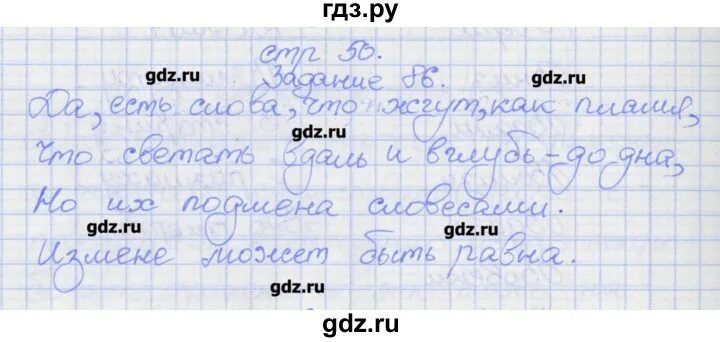 гдз.ру
стр 50.
gdz.ru
Задание 86.
gdz.ru
Да, есть слова, что жгут, как пламя,
gdz.ru
Что светать вдаль и вглубь - до дна,
Но их подмена словесами.
gdz.ru
gdz.ru
Измене может быть равна.
gdz.ru
gdz.ru